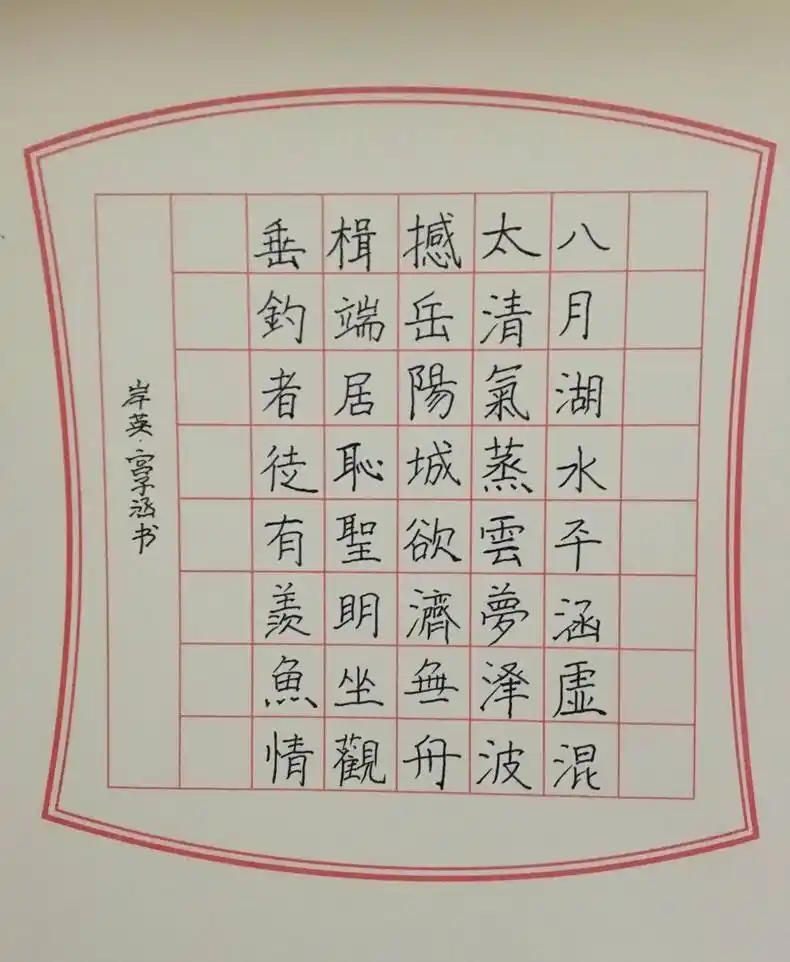 八月湖水平涵虚混
太清氣蒸雲夢泽波
撼岳陽城欲濟無舟
楫端居恥聖明坐觀
垂釣者徒有羨魚情
岸英·宫子涵书